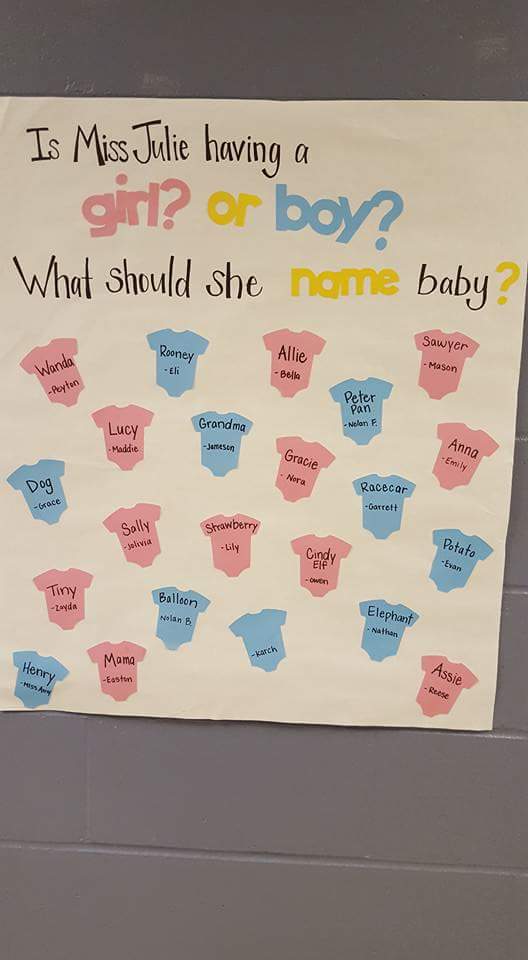 Is Miss Julie having a
girl? or boy?
What should she name baby?
Wanda
-Peyton
Rooney
- Eli
Allie
- Bella
Sawyer
- Mason
Lucy
-Maddie
Grandma
-Jameson
Peter
Pan
-Nolan F.
Gracie
- Nora
Anna
- Emily
Dog
-Grace
Racecar
-Garrett
Sally
-Jolivia
Strawberry
- Lily
Cindy
Elf
- Owen
Potato
-Evan
Tiny
-Zayda
Balloon
Nolan B
-Karch
Elephant
- Nathan
Henry
-Miss Amy
Mama
-Easton
Assie
- Reese